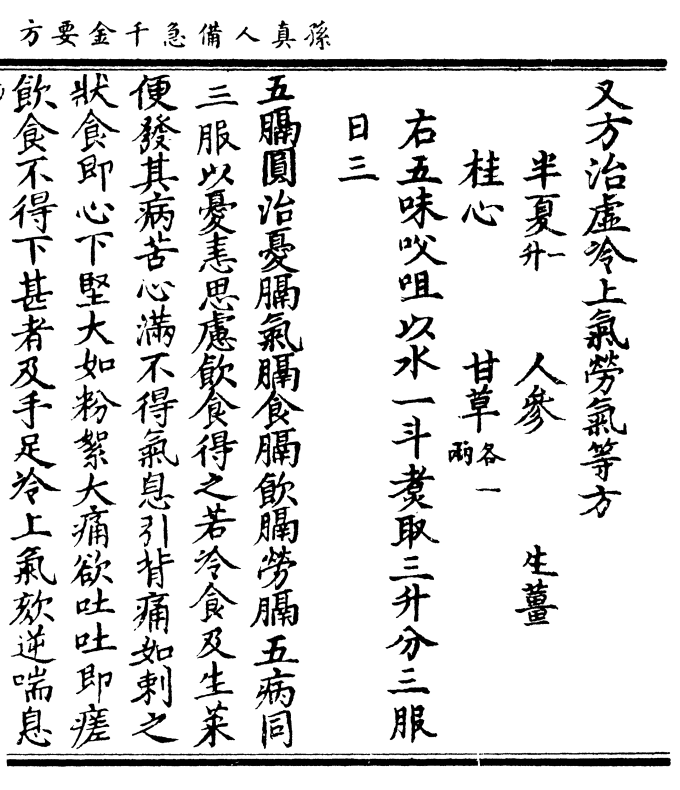 孫真人備急千金要方
又方治虛冷上氣勞氣等方
半夏一升 人參 生薑
桂心 甘草各一兩
右五味㕮咀以水一斗煑取三升分三服
日三
五膈圓治憂膈氣膈食膈飲膈勞膈五病同
三服以憂恚思慮飲食得之若冷食及生菜
便發其病苦心滿不得氣息引背痛如刺之
狀食即心下堅大如粉絮大痛欲吐吐即瘥
飲食不得下甚者及手足冷上氣欬逆喘息